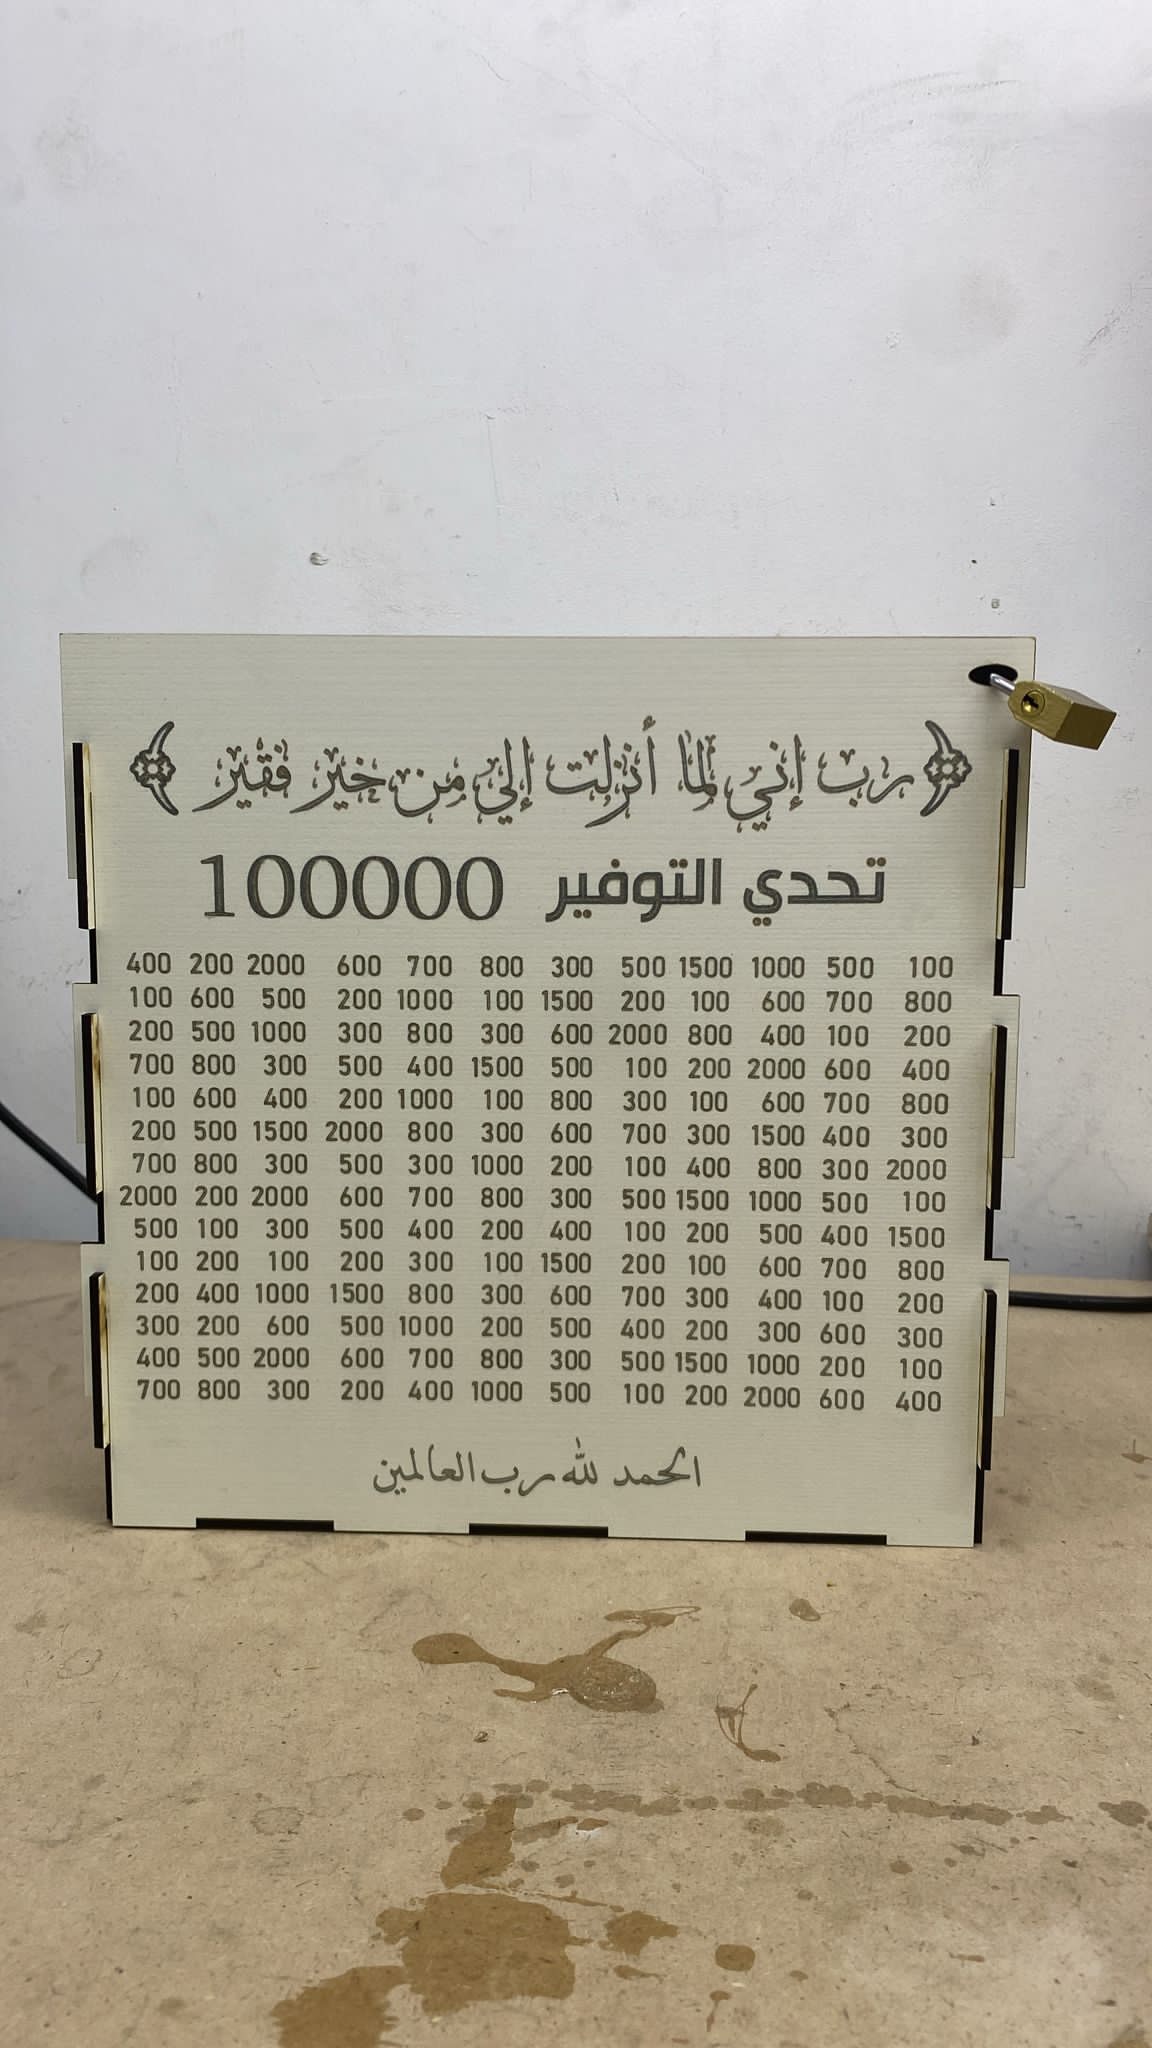 ﴿رب إني لما أنزلت إلي من خير فقير﴾
تحدي التوفير 100000
400 200 2000 600 700 800 300 500 1500 1000 500 100
100 600 500 200 1000 100 1500 200 100 600 700 800
200 500 1000 300 800 300 600 2000 800 400 100 200
700 800 300 500 400 1500 500 100 200 2000 600 400
100 600 400 200 1000 100 800 300 100 600 700 800
200 500 1500 2000 800 300 600 700 300 1500 400 300
700 800 300 500 300 1000 200 100 400 800 300 2000
2000 200 2000 600 700 800 300 500 1500 1000 500 100
500 100 300 500 400 200 400 100 200 500 400 1500
100 200 100 200 300 100 1500 200 100 600 700 800
200 400 1000 1500 800 300 600 700 300 400 100 200
300 200 600 500 1000 200 500 400 200 300 600 300
400 500 2000 600 700 800 300 500 1500 1000 200 100
700 800 300 200 400 1000 500 100 200 2000 600 400
الحمد لله رب العالمين